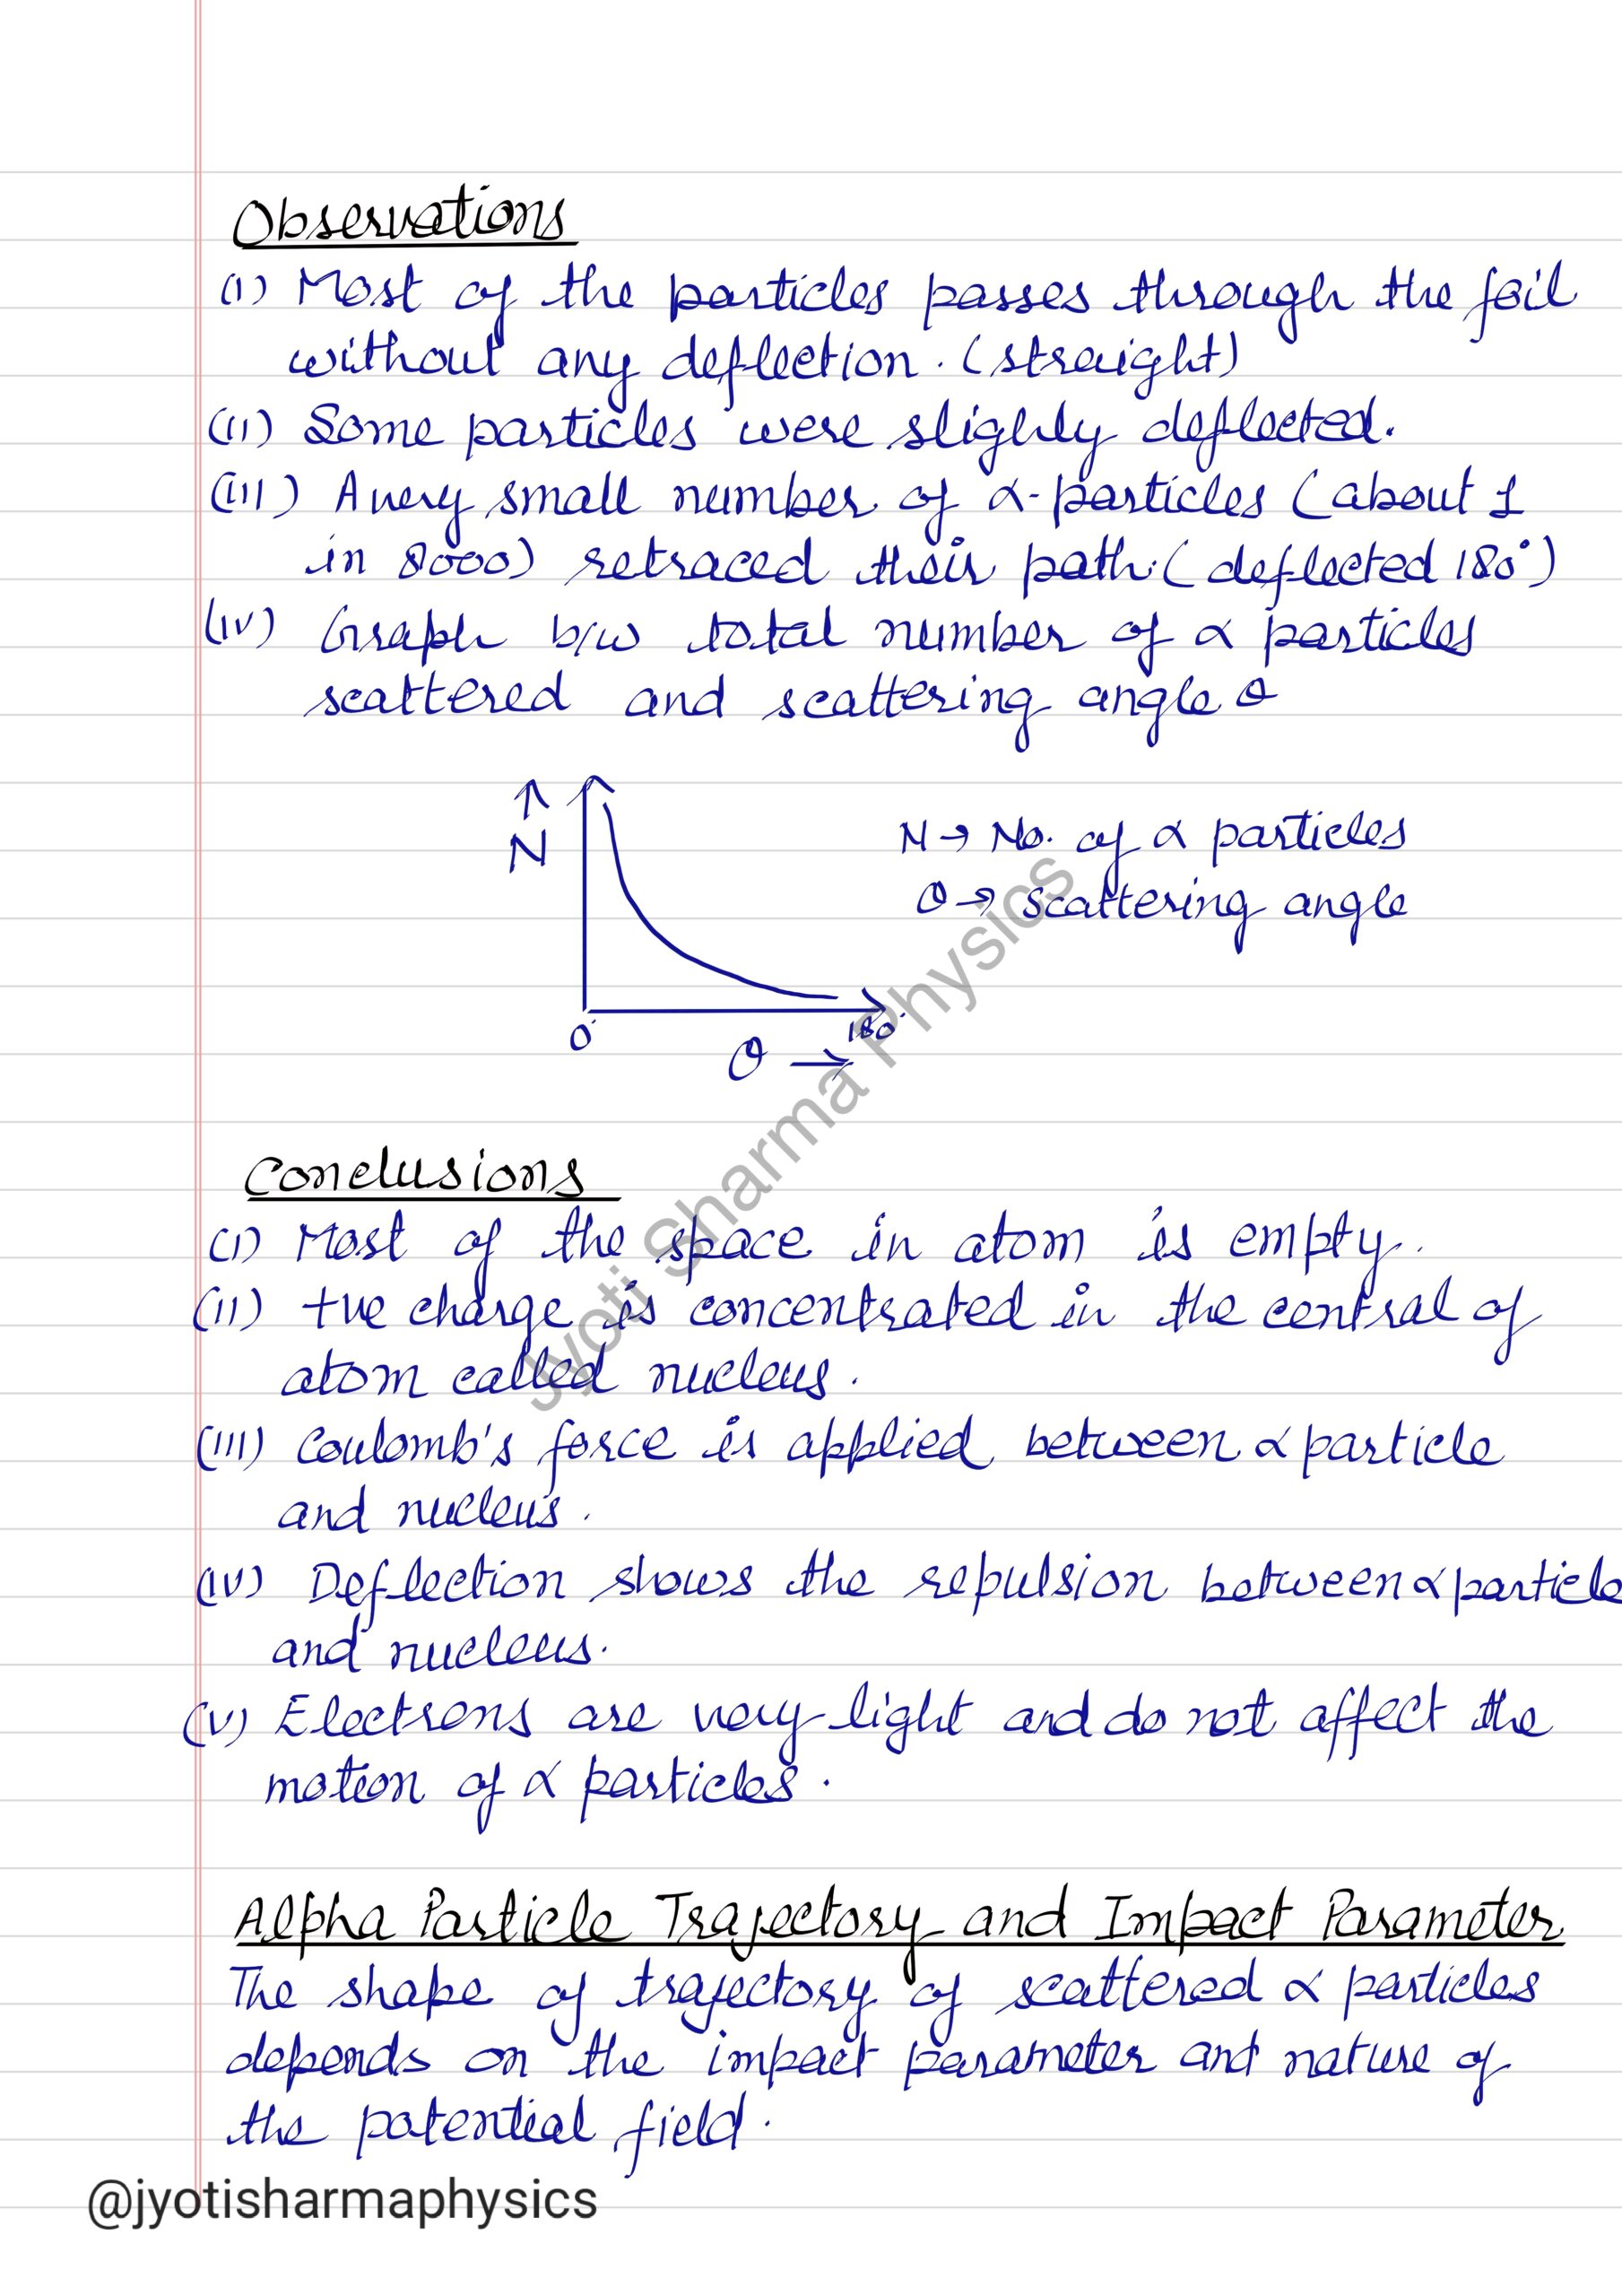 Observations
(i) Most of the particles passes through the foil
without any deflection. (straight)
(ii) Some particles were slighly deflected.
(iii) A very small number of α-particles (about 1
in 8000) retraced their path. (deflected 180°)
(iv) Graph b/w total number of α particles
scattered and scattering angle θ
↑
N
N → No. of α particles
θ → scattering angle
0°
180°
θ →
Conclusions
(i) Most of the space in atom is empty.
(ii) +ve charge is concentrated in the central of
atom called nucleus.
(iii) Coulomb's force is applied between α particle
and nucleus.
(iv) Deflection shows the repulsion between α particle
and nucleus.
(v) Electrons are very light and do not affect the
motion of α particles.
Alpha Particle Trajectory and Impact Parameter
The shape of trajectory of scattered α particles
depends on the impact parameter and nature of
the potential field.
Jyoti Sharma Physics
@jyotisharmaphysics